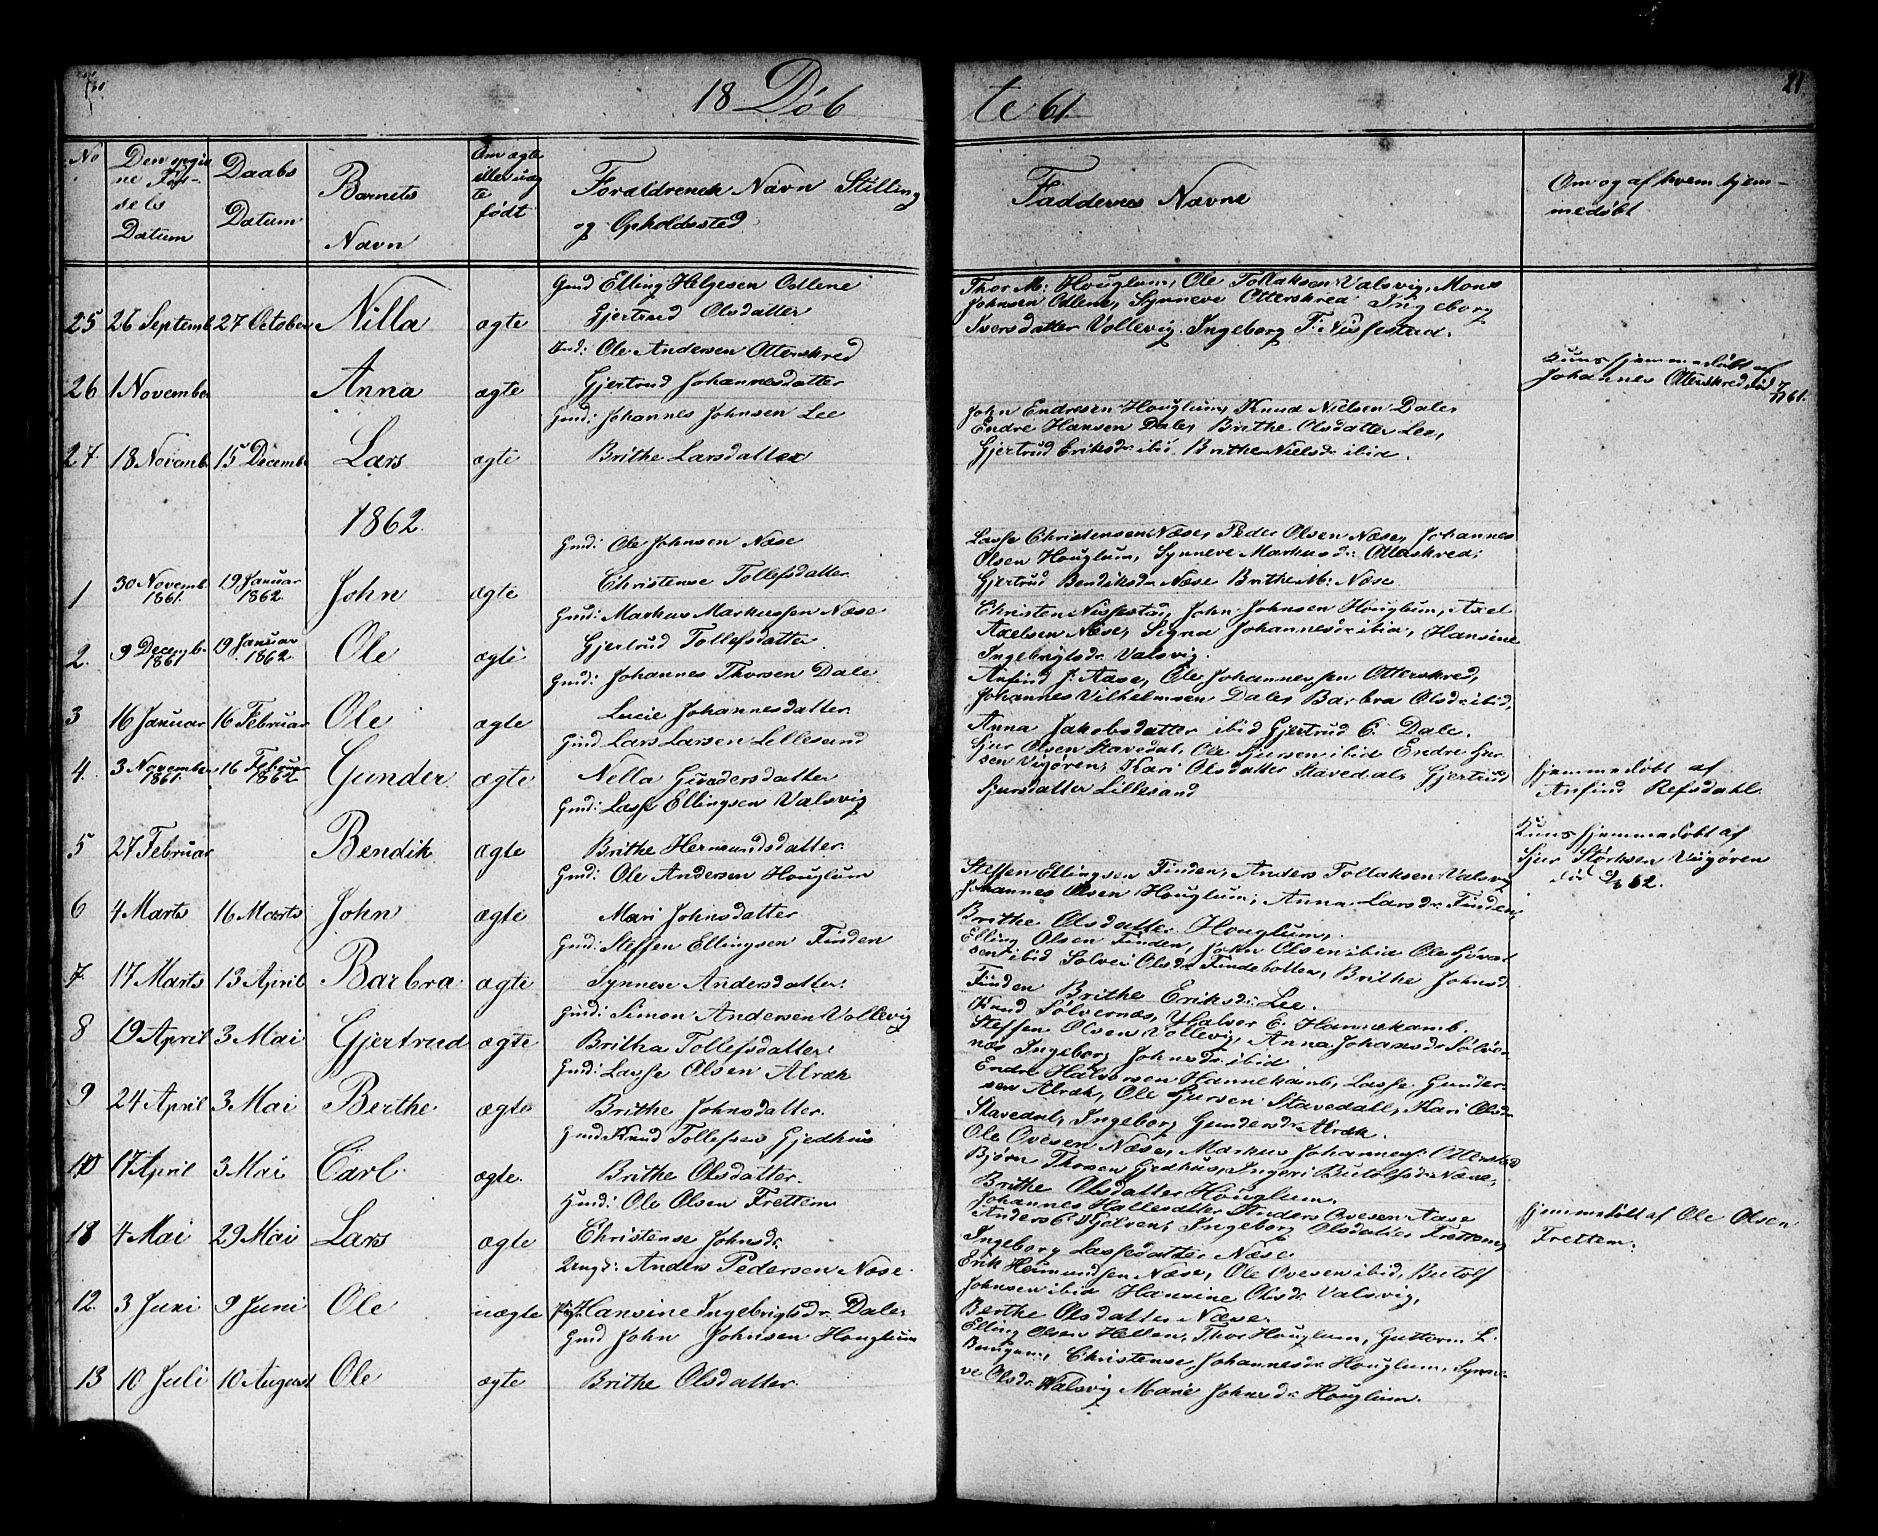 18 Döbte 61.
21
No
Den opgivne Fødselsdatum
Daabs Datum
Barnets Navn
Om ægte eller uægte født
Forældrenes Navn Stilling og Opholdssted
Faddernes Navne
Om og af hvem hjemmedøbt
25 26 Septemb 27 October Nilla ægte
Gmd Elling Helgesen Odlene
Gjertrud Olsdatter
Thor M: Houglum, Ole Tollaksen Valsvig, Mons
Johnsen Odlene, Synneve Otterskred Ingeborg
Iversdatter Vollevig. Ingeborg T: Nissestad.
26 1 November Anna ægte
Gmd: Ole Andersen Otterskred
Gjertrud Johannesdatter
Kuns hjemmedøbt af
Johannes Otterskred død 7/11 61.
27 18 Novemb. 15 Decemb Lars ægte
Gmd: Johannes Johnsen Lee
Brithe Larsdatter
John Endresen Houglum, Knud Nielsen Dale,
Endre Hansen Dale, Brithe Olsdatter Lee,
Gjertrud Eriksdr ibid Brithe Nielsdr ibid.
1862.
1 30 Novemb. 1861. 19 Januar 1862 John ægte
Gmd: Ole Johnsen Næse
Christense Tollefsdatter
Lasse Christensen Næse, Peder Olsen Næse, Johannes
Olsen Houglum, Synneve Markusdr: Otterskred;
Gjertrud Bendiksdr Næse Brithe M: Næse
2. 9 Decemb. 1861 19 Januar 1862 Ole ægte
Gmd: Markus Markussen Næse
Gjertrud Tollefsdatter.
Christen Nissestad, John Johnsen Houglum, Axel
Axelsen Næse, Signa Johannesdr ibid, Hansine
Ingebrigtsdr Valsvig.
3 16 Januar 16 Februar Ole ægte
Gmd: Johannes Thorsen Dale
Lucie Johannesdatter
Anfind J: Aase, Ole Johannessen Otterskred,
Johannes Vilhelmsen Dale, Barbra Olsdr ibid,
Anna Jakobsdatter ibid Gjertrud C. Dale.
4. 3 November 1861. 16 Februar 1862 Gunder ægte
Gmd Lars Larsen Lillesand
Nella Gundersdatter
Sjur Olsen Stavedal, Ole Sjursen ibid Endre Sjur
sen Vigøren, Kari Olsdatter Stavedal, Gjertrud
Sjursdatter Lillesand
Hjemmedøbt af
Anfind Refsdahl.
5 27 Februar Bendik ægte
Gmd: Lasse Ellingsen Valsvig
Brithe Hermundsdatter
Kuns hjemmedøbt af
Sjur Størksen Viigøren
død 62.
6 4 Marts 16 Marts John ægte
Gmd: Ole Andersen Houglum
Mari Johnsdatter
Steffen Ellingsen Finden, Anders Tollaksen Valsvig
Johannes Olsen Houglum, Anna Larsdr Finden,
Brithe Olsdatter Houglum,
7 17 Marts 13 April Barbra ægte
Gmd: Steffen Ellingsen Finden
Synneve Andersdatter.
Elling Olsen Finden, John Olsen ibid Ole
sen ibid Sølvei Olsdr Findebotten, Brithe Johnsd
Finden Brithe Eriksdr Lee.
8 19 April 3 Mai Gjertrud ægte
Gmd: Simon Andersen Vollevig
Britha Tollefsdatter
Knud Sølvernæs, Halvor E. Hannekamb.
Steffen Olsen Vollevig, Anna Johansdr Sølver
næs Ingeborg Johnsdr ibid
9 24 April 3 Mai Berthe ægte
Gmd: Lasse Olsen Alræk
Brithe Johnsdatter.
Endre Halvorsen Hannekamb, Lasse Gunder
sen Alræk, Ole Sjursen Stavedal, Kari Olsdr
Stavedal, Ingeborg Gundersdr Alræk.
10 17 April 3 Mai Carl ægte.
Gmd Knud Tollefsen Gjedhus
Brithe Olsdatter.
Ole Ovesen Næse, Markus Johannes: Otterskred
Bjørn Thosen Gjedhus, Ingeri Butolfsdr Næse,
Brithe Olsdatter Houglum.
11 4 Mai 29 Mai Lars ægte
Hmd: Ole Olsen Frettem
Christense Johnsdr.
Johannes Anders Ovesen Aase
Anders Ingeborg Olsdatter Frettem,
Ingeborg Lassesdatter Næse.
hjemmedøbt af Ole Olsen
Frettem.
12. 3 Juni 9 Juni Ole uægte
Ungk: Anders Pedersen Næse.
Pige Hansine Ingebrigtsdr Dale
Erik Hermundsen Næse, Ole Ovesen ibid, Butolf
Johnsen ibid Hansine Olsdr Valsvig,
Berthe Olsdatter Næse.
13 10 Juli 10 August Ole ægte
Gmd John Johnsen Houglum
Brithe Olsdatter.
Elling Olsen Hellen, Thor Houglum, Guttorm L.
Baugen, Christense Johannesdr Houglum, Synne
ve Olsdr Valsvig Marie Johnsdr Houglum.